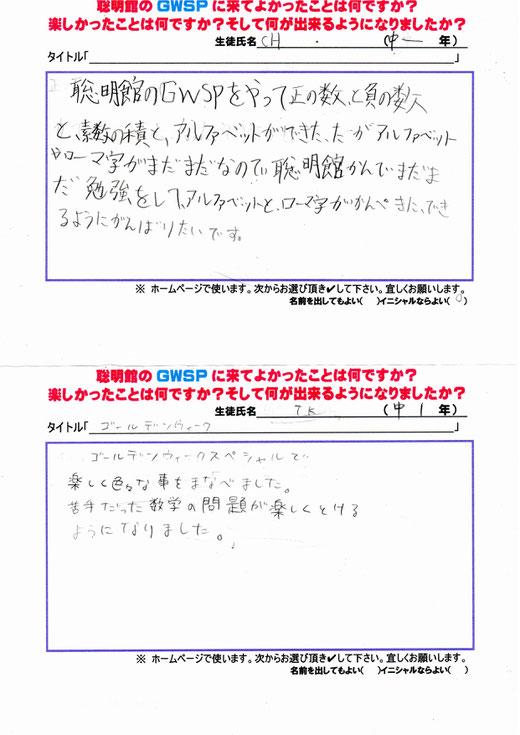 聡明館の GWSP に来てよかったことは何ですか？
楽しかったことは何ですか？そして何が出来るようになりましたか？
生徒氏名 CH (中一 年)
タイトル「 」
聡明館のGWSPをやって正の数、と負の数
と、素数の積と、アルファベットができた、たがアルファベット
やローマ字がまだまだなので 聡明館かんでまだま
だ 勉強をして、アルファベットと、ローマ字がかんぺきた、でき
るようにがんばりたいです。
※ ホームページで使います。次からお選び頂き✔して下さい。宜しくお願いします。
名前を出してもよい( )イニシャルならよい( 0 )
聡明館の GWSP に来てよかったことは何ですか？
楽しかったことは何ですか？そして何が出来るようになりましたか？
生徒氏名 TK (中 1 年)
タイトル「 ゴールデンウィーク 」
ゴールデンウィークスペシャルで
楽しく色々な事をまなべました。
苦手だった数学の問題が楽しくとける
ようになりました。
※ ホームページで使います。次からお選び頂き✔して下さい。宜しくお願いします。
名前を出してもよい( )イニシャルならよい( )